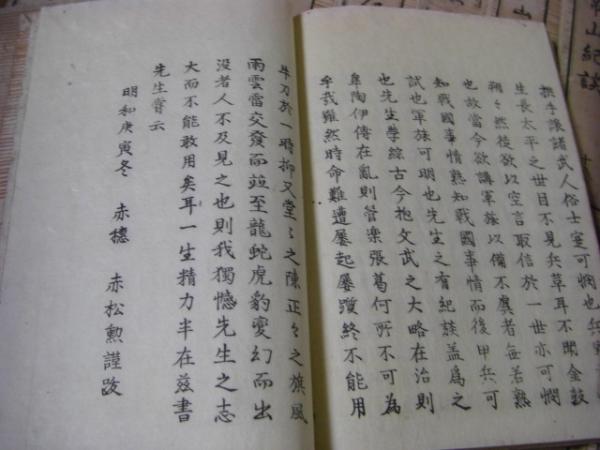 手讓諸武人俗士寔可憫也兵
生長太平之世目不見兵革耳不聞金鼓
然後欲以空言取信於一世亦可憫
也故當今欲講軍旅以備不虞者毎若熟
知戰國事情熟知戰國事情而後甲兵可
試也軍旅可明也先生之有紀談盖爲之
也先生學綜古今抱文武之大略在治則
皐陶伊傅在亂則管樂張葛何所不可為
乎我雖然時命難遭屢起屢躓終不能用
牛刀於一時抑又堂々之陳正々之旗風
雨雲雷交發而竝至龍蛇虎豹變幻而出
没者人不及見之也則我獨憶先生之志
大而不能敢用矣耳一生精力半在茲書
先生嘗云
明和庚寅冬 赤穗 赤松勲謹跋
山紀談